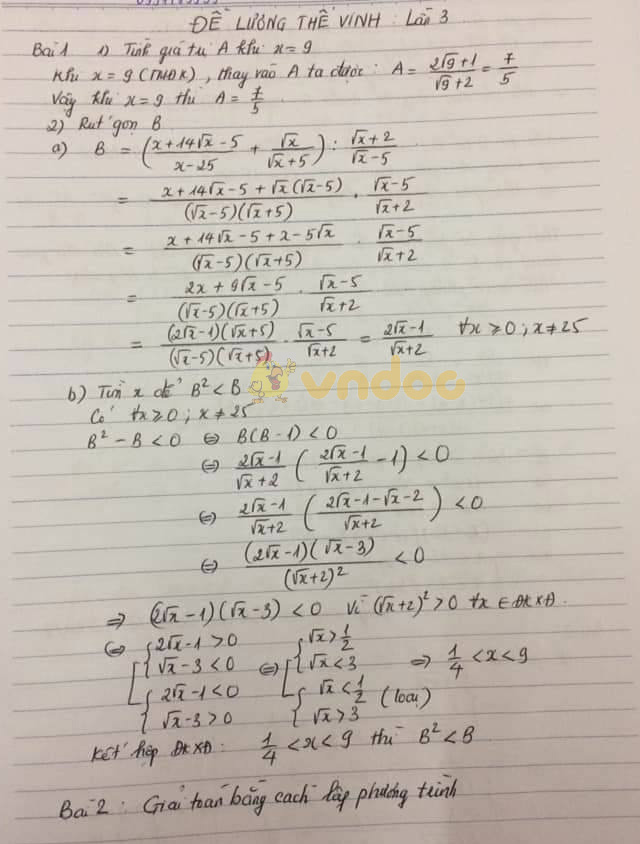 ĐỀ LƯƠNG THẾ VINH : Lần 3
Bài 1 1) Tính giá trị A khi x = 9
Khi x = 9 (TMĐK), thay vào A ta được: A = (2√9+1)/(√9+2) = 7/5
Vậy khi x = 9 thì A = 7/5.
2) Rút gọn B
a) B = ((x+14√x-5)/(x-25) + √x/(√x+5)) : (√x+2)/(√x-5)
= (x+14√x-5+√x(√x-5))/((√x-5)(√x+5)) . (√x-5)/(√x+2)
= (x+14√x-5+x-5√x)/((√x-5)(√x+5)) . (√x-5)/(√x+2)
= (2x+9√x-5)/((√x-5)(√x+5)) . (√x-5)/(√x+2)
= ((2√x-1)(√x+5))/((√x-5)(√x+5)) . (√x-5)/(√x+2) = (2√x-1)/(√x+2) ∀x ≥ 0; x ≠ 25
vndoc
b) Tìm x để B² < B
Có ∀x ≥ 0; x ≠ 25
B² - B < 0 ⇔ B(B-1) < 0
⇔ (2√x-1)/(√x+2) ((2√x-1)/(√x+2) - 1) < 0
⇔ (2√x-1)/(√x+2) ((2√x-1-√x-2)/(√x+2)) < 0
⇔ ((2√x-1)(√x-3))/(√x+2)² < 0
⇒ (2√x-1)(√x-3) < 0 Vì (√x+2)² > 0 ∀x ∈ ĐKXĐ.
⇔ [ { 2√x-1 > 0 [ { √x > 1/2
{ √x-3 < 0 ⇔ { √x < 3 ⇒ 1/4 < x < 9
{ 2√x-1 < 0 { √x < 1/2 (loại)
{ √x-3 > 0 { √x > 3
Kết hợp ĐKXĐ: 1/4 < x < 9 thì B² < B
Bài 2 : Giải toán bằng cách lập phương trình